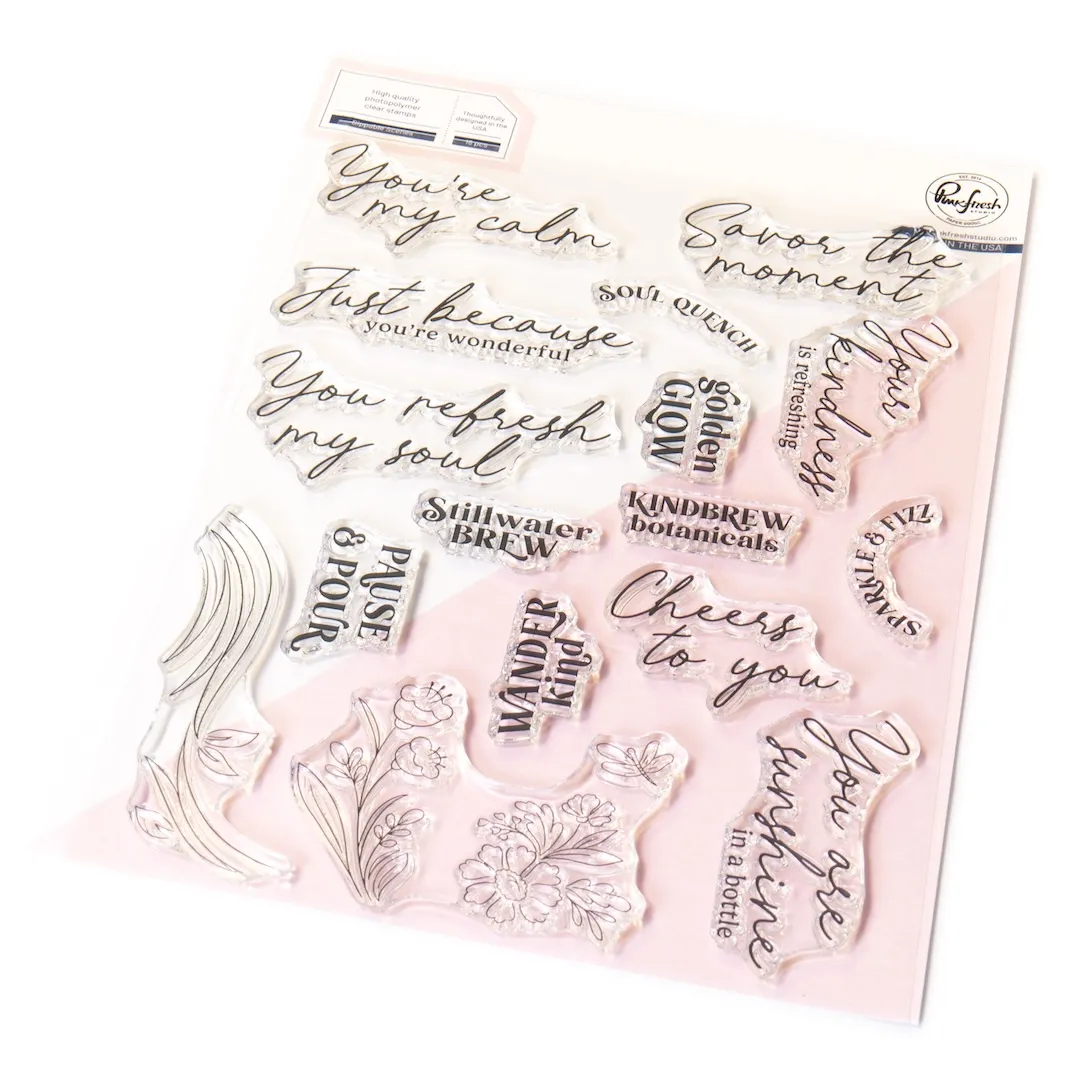 High quality
photopolymer
clear stamps
Sippable Scenes
Thoughtfully
designed in the
USA
16 pcs
EST. 2012
Pinkfresh
STUDIO
PAPER GOODS
freshstudio.com
IN THE USA
You're
my calm
Savor the
moment
Just because
you're wonderful
SOUL QUENCH
Your
kindness
is refreshing
You refresh
my soul
golden
GLOW
Stillwater
BREW
KINDBREW
botanicals
SPARKLE & FIZZ
PAUSE
& POUR
WANDER
kind
Cheers
to you
You are
sunshine
in a bottle